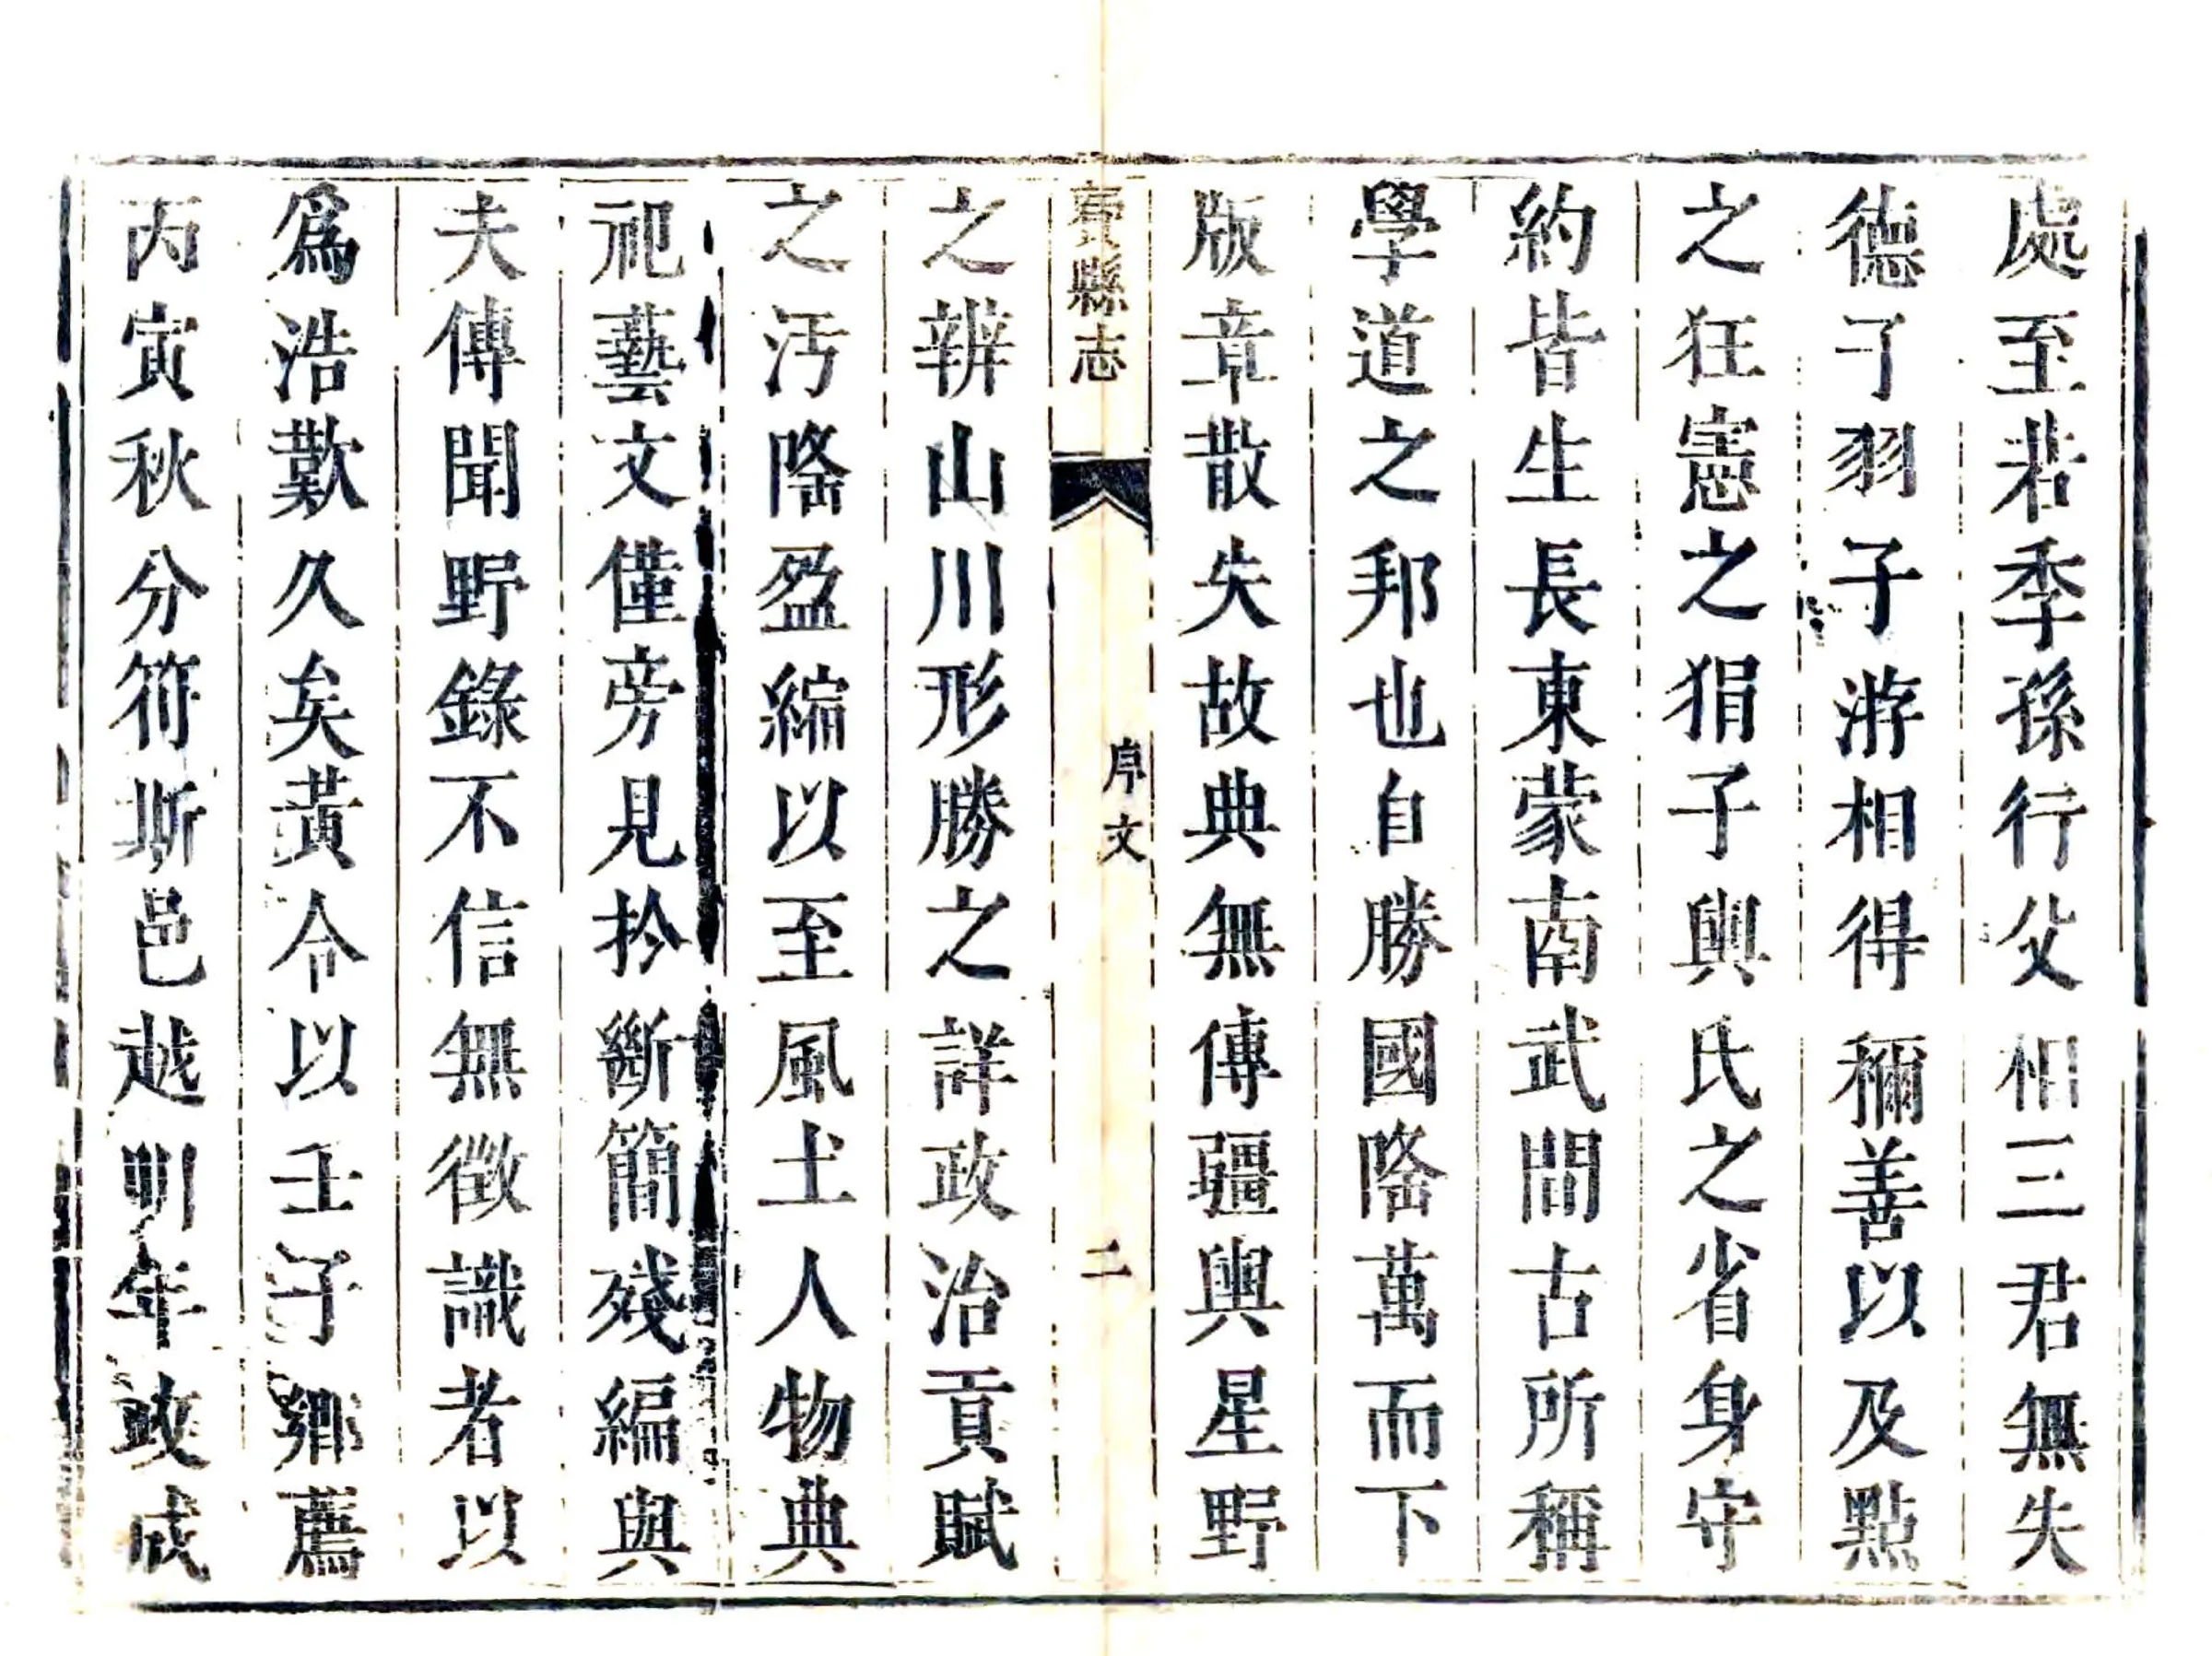 處至若季孫行父相三君無失
德子羽子游相得稱善以及點
之狂憲之狷子輿氏之省身守
約皆生長東蒙南武間古所稱
學道之邦也自勝國隆萬而下
版章散失故典無傳疆輿星野
費縣志
序文
二
之辨山川形勝之詳政治貢賦
之汚隆盈縮以至風土人物典
祀藝文僅旁見於斷簡殘編與
夫傳聞野錄不信無徵識者以
爲浩歎久矣黃令以壬子鄉薦
丙寅秋分符斯邑越明年政成